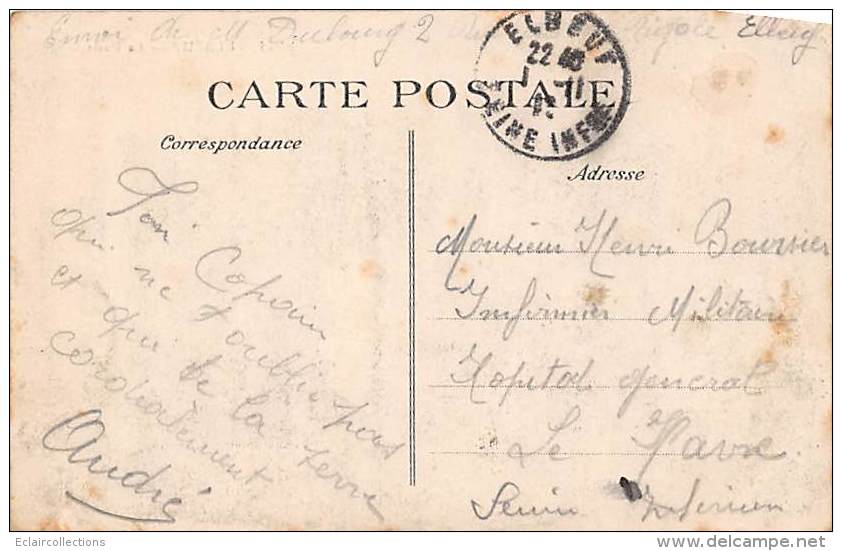 Envoi de M Dubourg 2 Rigole Elbeuf
ELBEUF
22
SEINE INFRE
CARTE POSTALE
Correspondance
Adresse
Ton Copain
qui ne t'oublie pas
et qui te la serre
cordialement
André
Monsieur Henri Boursier
Infirmier Militair
Hopital general
Le Havre
Seine Inferieu
Eclaircollections
www.delcampe.net